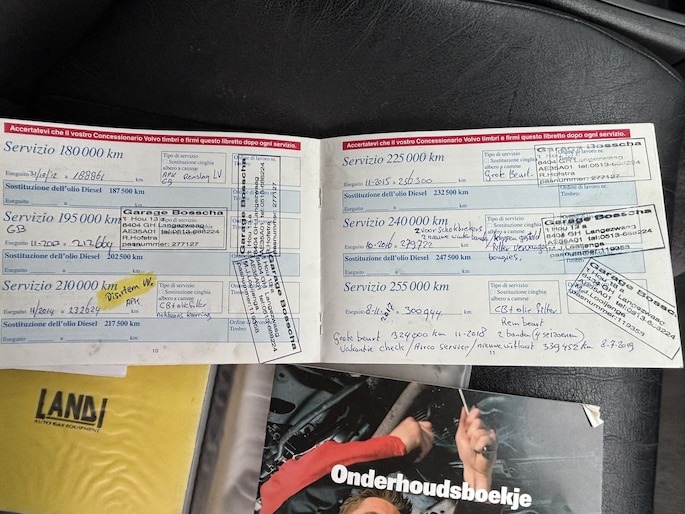 Accertatevi che il vostro Concessionario Volvo timbri e firmi questo libretto dopo ogni servizio.
Servizio 180 000 km
Tipo di servizio
Sostituzione cinghia
albero a camme
Eseguito 31/10/12 a 188861
APK
Sostituzione dell'olio Diesel 187 500 km
Eseguito a
Servizio 195 000 km
GB
Tipo di servizio
Sostituzione cinghia
albero a camme
Garage Bosscha
1 Hou 13 a
8404 GH Langezwaag
AE35A01 tel:0513-688224
R.Hofstra
pasnummer: 277127
Sostituzione dell'olio Diesel 202 500 km
Eseguito a
Servizio 210 000 km
Tipo di servizio
Sostituzione cinghia
albero a camme
APK
Eseguito 11/2014 a 232624
GB+oliefilter
Sostituzione dell'olio Diesel 217 500 km
Eseguito a
Garage Bosscha
10
Accertatevi che il vostro Concessionario Volvo timbri e firmi questo libretto dopo ogni servizio.
Servizio 225 000 km
Tipo di servizio
Sostituzione cinghia
albero a camme
Eseguito 11-2015 a 256300
Grote beurt
Garage Bosscha
1 Hou 13 a
8404 GH Langezwaag
AE35A01 tel:0513-688224
R.Hofstra
pasnummer: 277127
Sostituzione dell'olio Diesel 232 500 km
Ordine di lavoro nr.
Eseguito a
Timbro
Servizio 240 000 km
2 voor schokbrekers
Eseguito 10-2016 a 279722
bougies.
Garage Bosscha
1 Hou 13 a
8404 GH Langezwaag
pasnummer: 119353
Sostituzione dell'olio Diesel 247 500 km
Eseguito a
Servizio 255 000 km
Tipo di servizio
Sostituzione cinghia
albero a camme
Eseguito a 300944
GB+olie filter
Rem beurt
2 banden (4 seizoenen)
Garage Bosscha
Grote beurt 324000 km 11-2018
Vakantie check / Airco service / nieuwe uitlaat 339452 km 8-7-2019
11
LANDI
AUTO GAS EQUIPMENT
Onderhoudsboekje